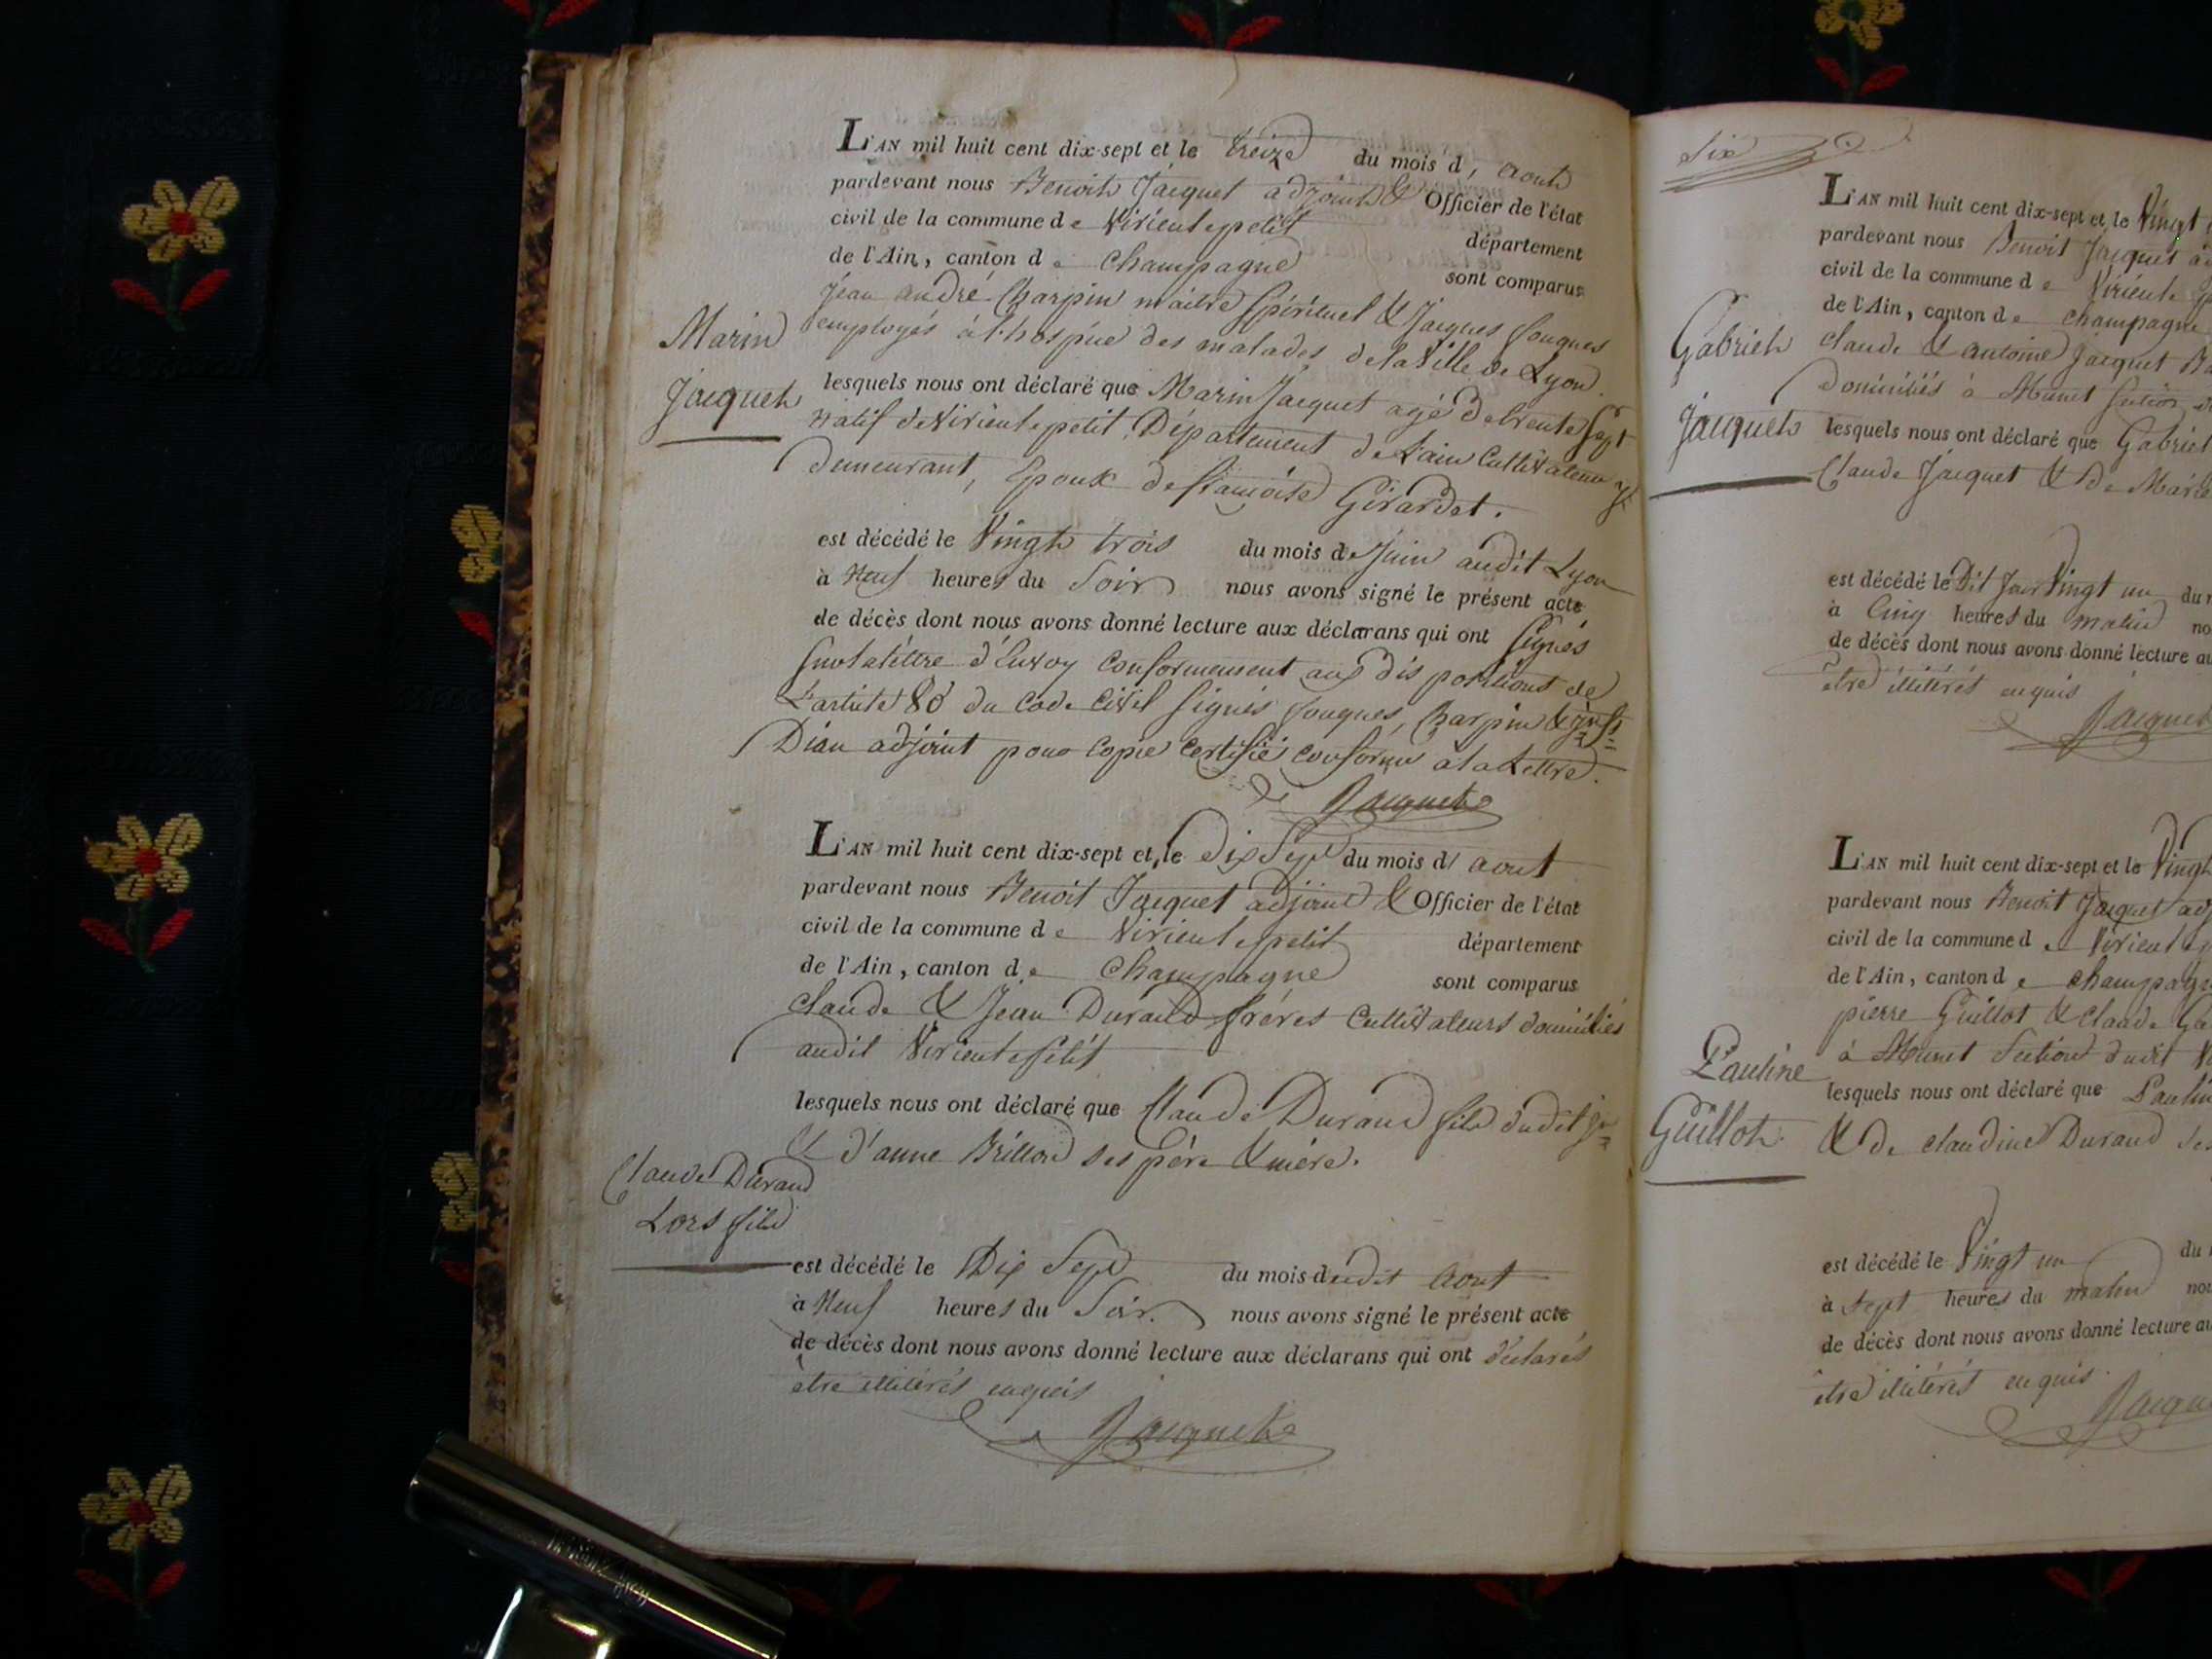 L'AN mil huit cent dix-sept et le treize du mois d, aout
pardevant nous Benoit Jacquet adjoint & Officier de l'état
civil de la commune de Virieulepetit département
de l'Ain, canton de Champagne sont comparus
Jean andré Charpin maitre Spirituel & Jacques fouques
employés à l'hospice des malades de la Ville de Lyon.
Marin
Jacquet
lesquels nous ont déclaré que Marin Jacquet agé de trente sept
natif de Virieulepetit, Département de Lain Cultivateur y
demeurant, Epoux de françoise Girardet.
est décédé le Vingt trois du mois de Juin audit Lyon
à Neuf heures du Soir nous avons signé le présent acte
de décès dont nous avons donné lecture aux déclarans qui ont Signés
conformement aux dispositions de
L'article 80 du Code Civil Signés fouques, Charpin &
Dian adjoint pour Copie Certifié conforme à la Lettre.
Jacquet
L'AN mil huit cent dix-sept et le dix Sept du mois d' aout
pardevant nous Benoit Jacquet adjoint & Officier de l'état
civil de la commune de Virieulepetit département
de l'Ain, canton de Champagne sont comparus
Claude & Jean Durand fréres Cultivateurs domiciliés
audit Virieulepetit
lesquels nous ont déclaré que Claude Durand fils dudit Jn
& d'anne Brillon ses pére & mére.
Claude Durand
Lors fils
est décédé le Dix Sept du mois dudit Aout
à Neuf heures du Soir. nous avons signé le présent acte
de décès dont nous avons donné lecture aux déclarans qui ont déclarés
etre illitérés enquis
Jacquet
Six
L'AN mil huit cent dix-sept et le Vingt
pardevant nous Benoit Jacquet
civil de la commune de Virieule
de l'Ain, canton de Champagne
Claude & antoine Jacquet
domiciliés à Munet Section
Gabriel
Jacquet
lesquels nous ont déclaré que Gabriel
Claude Jacquet & de Marie
est décédé le Dit Jour Vingt un du
à Cinq heures du matin
de décès dont nous avons donné lecture
etre illitérés enquis
Jacquet
L'AN mil huit cent dix-sept et le Vingt
pardevant nous Benoit Jacquet
civil de la commune de Virieule
de l'Ain, canton de Champagne
pierre Guillot & Claude
à Munet Section dudit
Pauline
Guillot
lesquels nous ont déclaré que Pauline
& de Claudine Durand
est décédé le Vingt un du
à Sept heures du matin
de décès dont nous avons donné lecture
etre illitérés enquis.
Jacquet